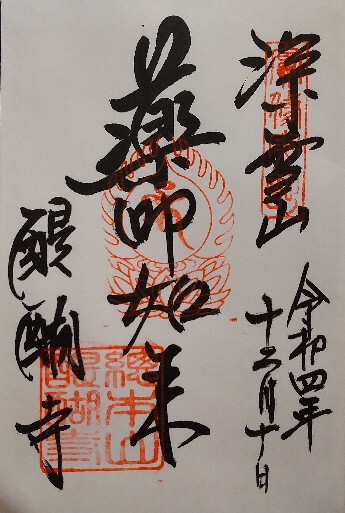 深雪山
令和四年
十二月十日
薬師如来
醍醐寺
総本山
醍醐寺